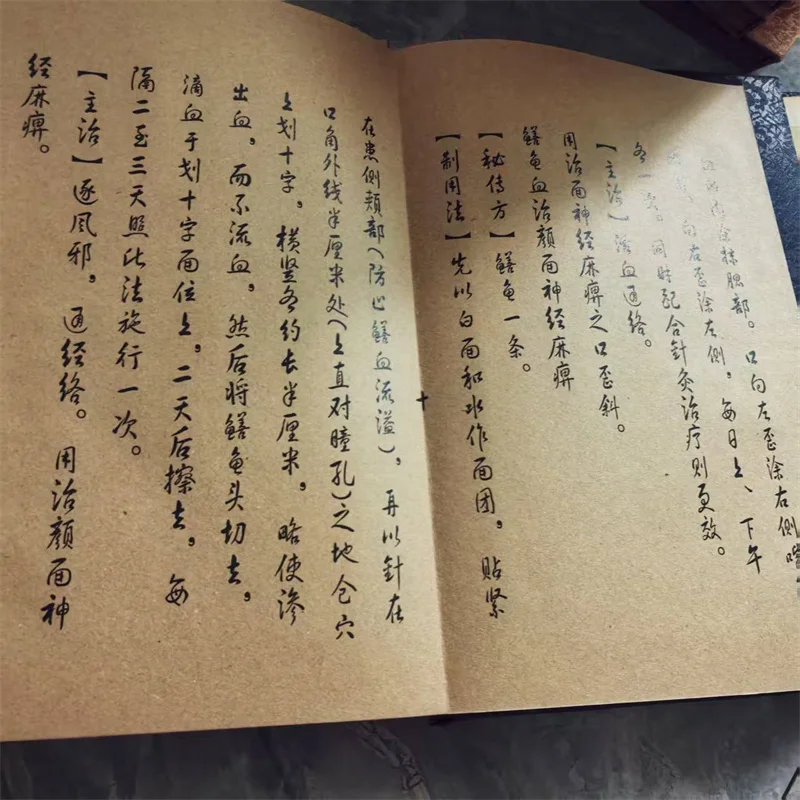 涂抹腮部。口向左歪涂右侧
向右歪涂左侧，每日上、下午
各一次。同时配合针灸治疗则更效。
【主治】活血通络。
用治面神经麻痹之口歪斜。
鳝鱼血治颜面神经麻痹
【秘传方】鳝鱼一条。
【制用法】先以白面和水作面团，贴紧
在患侧颊部（防止鳝血流溢），再以針在
口角外线半厘米处（上直对瞳孔）之地仓穴
上划十字，横竖各约长半厘米，略使渗
出血，而不流血，然后将鳝鱼头切去，
滴血于划十字面位上，二天后擦去，每
隔二至三天照此法施行一次。
【主治】逐风邪，通经络。用治颜面神
经麻痹。